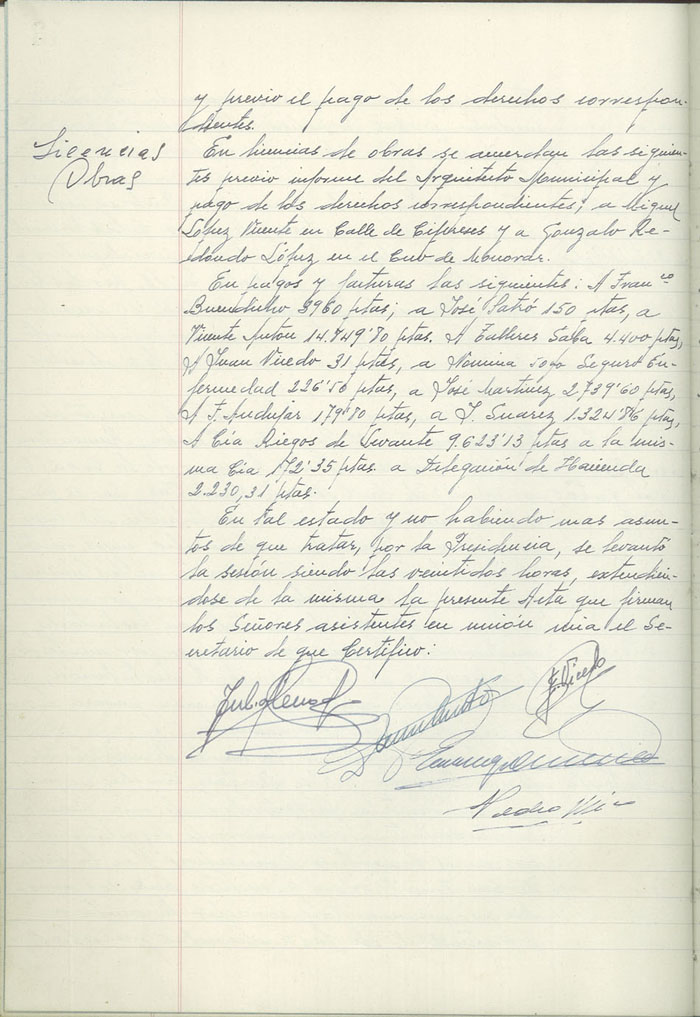 y previo el pago de los derechos correspon-
dientes.
Licencias
Obras
En licencias de obras se acuerdan las siguien-
tes previo informe del Arquitecto Municipal y
pago de los derechos correspondientes; a Miguel
López Vicente en Calle de Cipreses y a Gonzalo Re-
dondo López en el Cub de Monovar.
En pagos y facturas las siguientes: A Franco
Buendicho 3960 ptas; a José Satró 150 ptas, a
Vicente Antón 14.849'80 ptas. A Talleres Salba 4.400 ptas,
A Juan Vicedo 31 ptas, a Nomina 50% Seguro En-
fermedad 226'50 ptas, a José Martinez 2.739'60 ptas,
A F. Andujar 179'80 ptas, a J. Suarez 1.324'86 ptas,
A Cía Riegos de Levante 9.623'13 ptas a la mis-
ma Cia 172'35 ptas. a Delegación de Hacienda
2.230,31 ptas.
En tal estado y no habiendo mas asun-
tos de que tratar, por la Presidencia, se levantó
la sesión siendo las veintidos horas, extendién-
dose de la misma la presente Acta que firman
los Señores asistentes en unión mia el Se-
cretario de que Certifico: